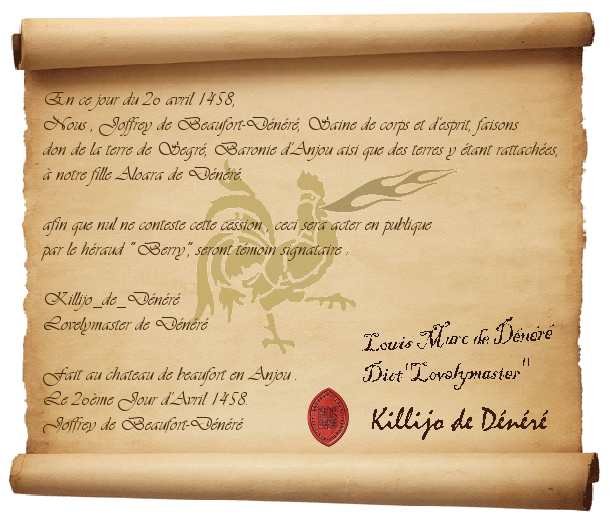 En ce jour du 20 avril 1458,
Nous , Joffrey de Beaufort-Dénéré, Saine de corps et d'esprit, faisons
don de la terre de Segré, Baronie d'Anjou aisi que des terres y étant rattachées,
à notre fille Aloara de Dénéré.
afin que nul ne conteste cette cession , ceci sera acter en publique
par le héraud "Berry", seront témoin signataire :
Killijo_de_Dénéré
Lovelymaster de Dénéré
Fait au chateau de beaufort en Anjou .
Le 20ème Jour d'Avril 1458.
Joffrey de Beaufort-Dénéré
Louis Marc de Dénéré
Dict "Lovelymaster"
Killijo de Dénéré